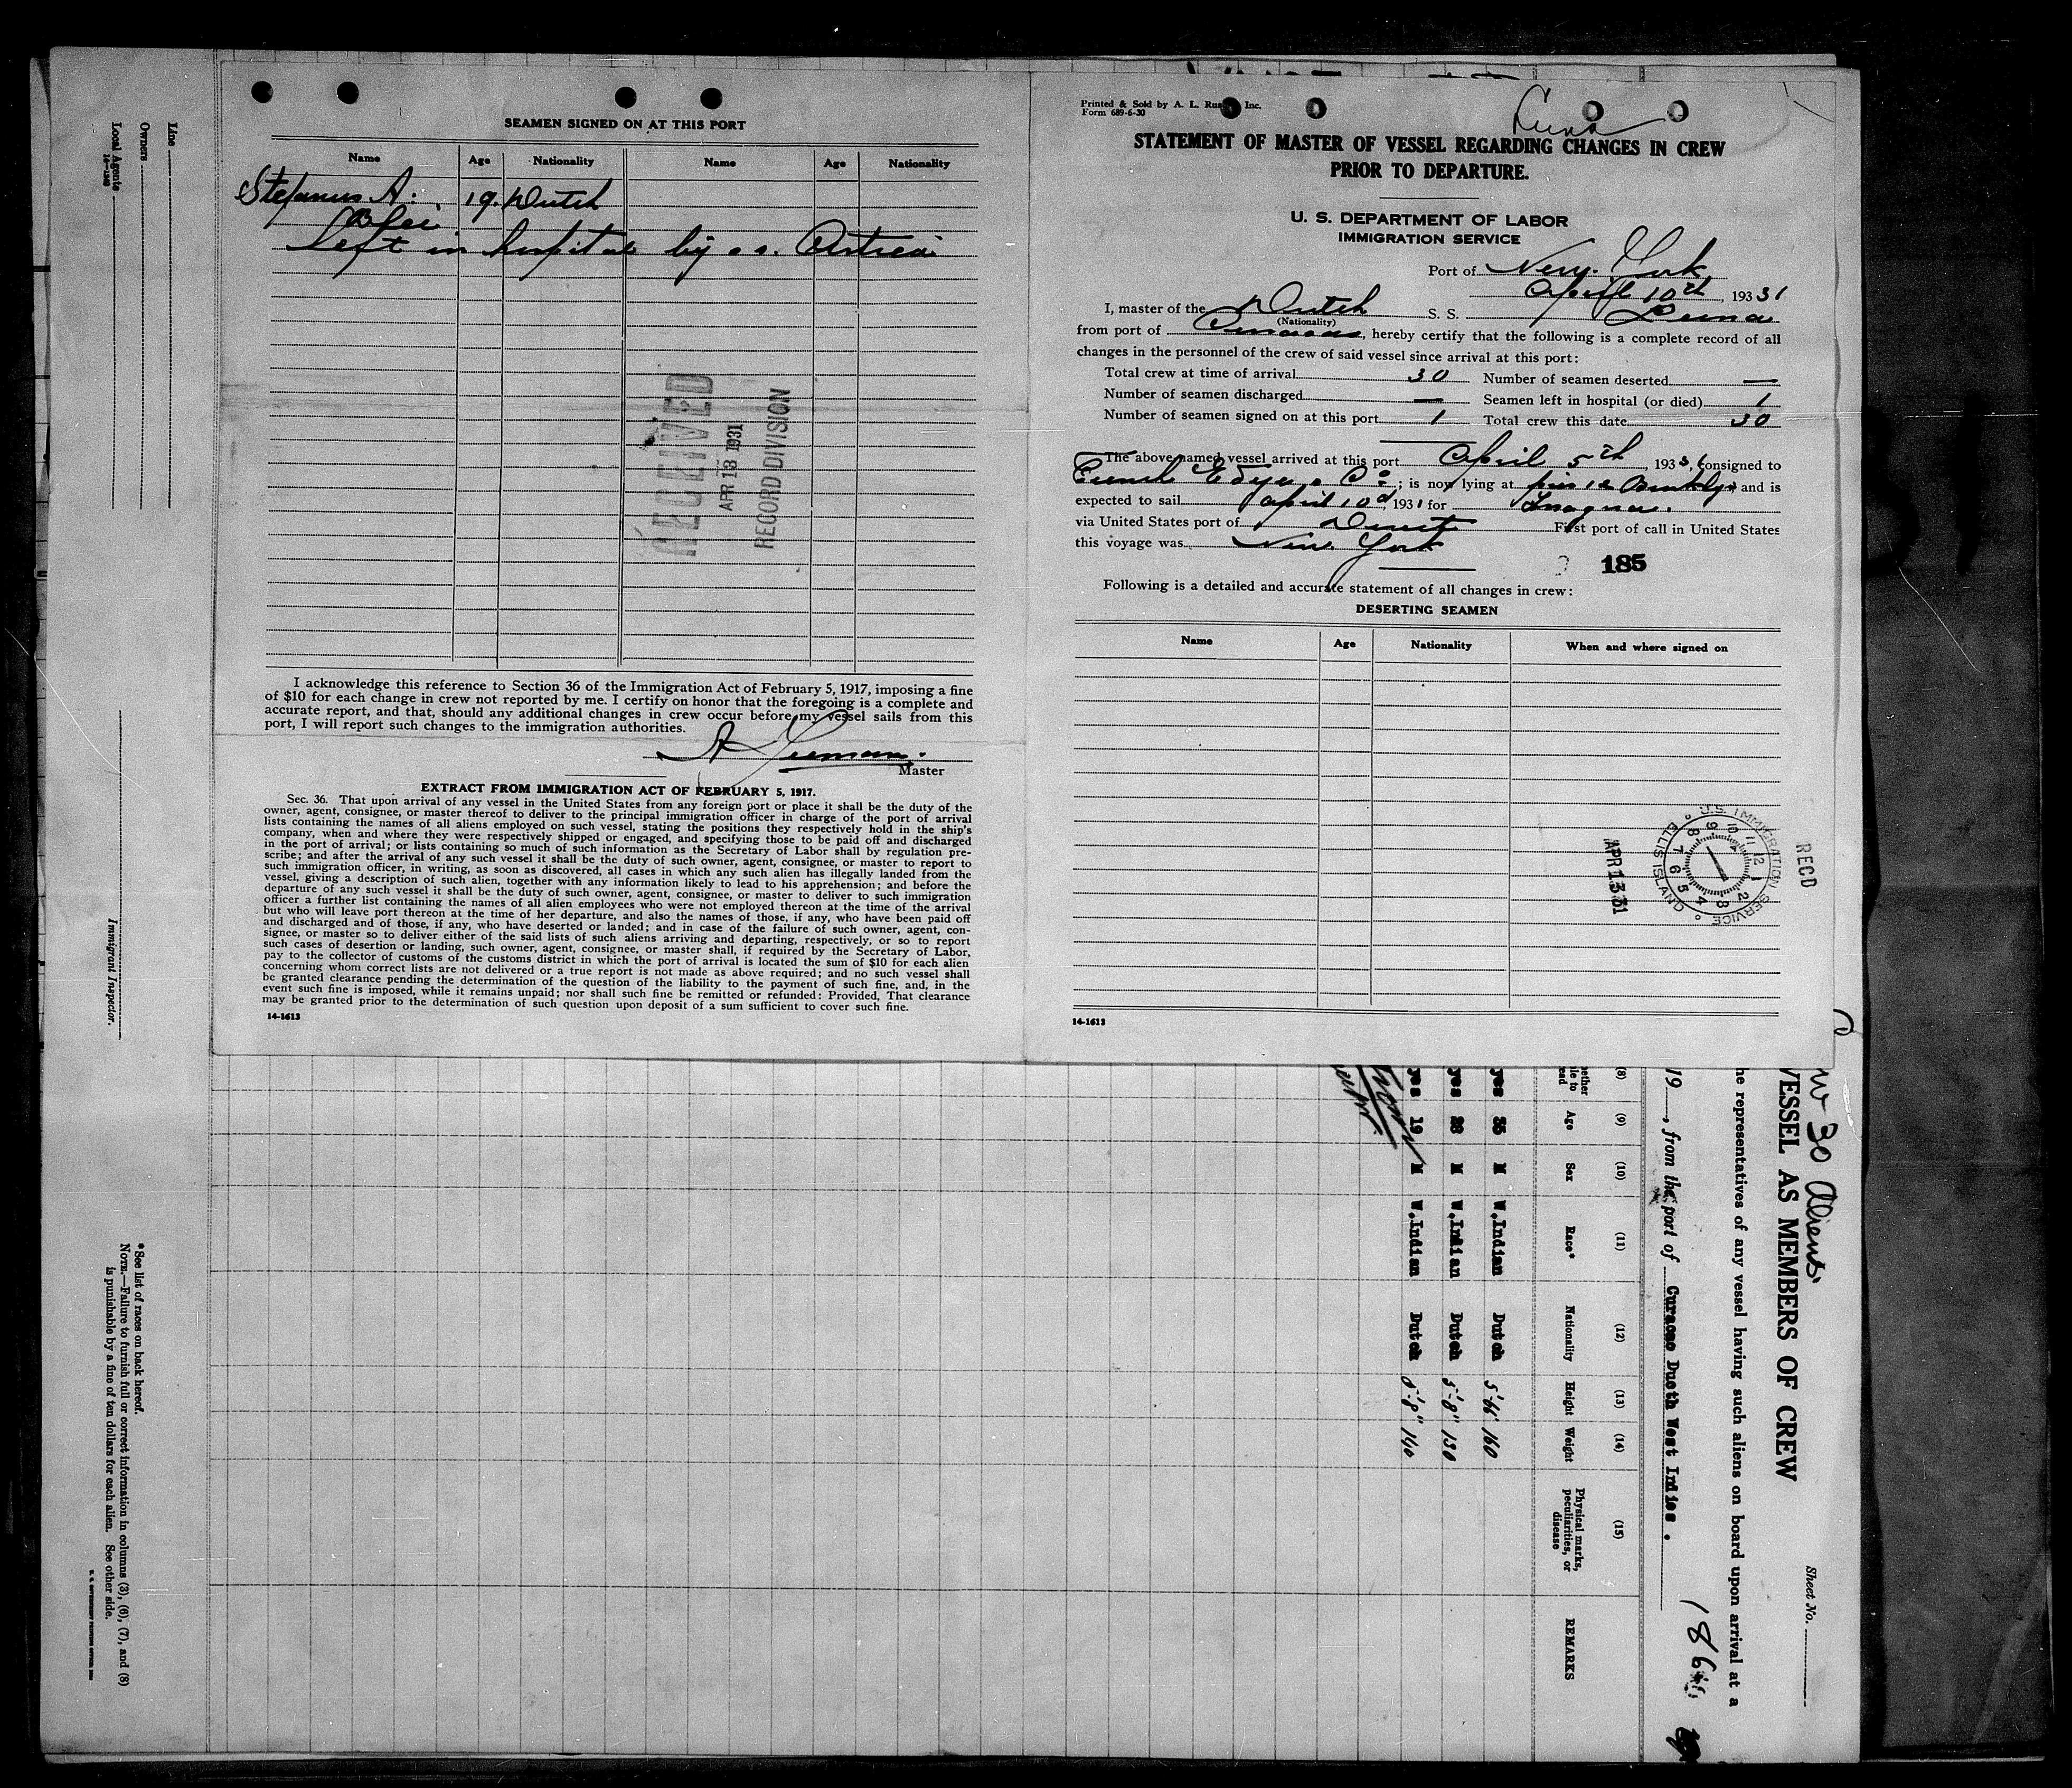 SEAMEN SIGNED ON AT THIS PORT
Name Age Nationality Name Age Nationality
Stefanus A. 19. Dutch
left in hospital by s.s. Astrea
RECEIVED
APR 13 1931
RECORD DIVISION
I acknowledge this reference to Section 36 of the Immigration Act of February 5, 1917, imposing a fine
of $10 for each change in crew not reported by me. I certify on honor that the foregoing is a complete and
accurate report, and that, should any additional changes in crew occur before my vessel sails from this
port, I will report such changes to the immigration authorities.
Master
EXTRACT FROM IMMIGRATION ACT OF FEBRUARY 5, 1917.
Sec. 36. That upon arrival of any vessel in the United States from any foreign port or place it shall be the duty of the
owner, agent, consignee, or master thereof to deliver to the principal immigration officer in charge of the port of arrival
lists containing the names of all aliens employed on such vessel, stating the positions they respectively hold in the ship's
company, when and where they were respectively shipped or engaged, and specifying those to be paid off and discharged
in the port of arrival; or lists containing so much of such information as the Secretary of Labor shall by regulation pre-
scribe; and after the arrival of any such vessel it shall be the duty of such owner, agent, consignee, or master to report to
such immigration officer, in writing, as soon as discovered, all cases in which any such alien has illegally landed from the
vessel, giving a description of such alien, together with any information likely to lead to his apprehension; and before the
departure of any such vessel it shall be the duty of such owner, agent, consignee, or master to deliver to such immigration
officer a further list containing the names of all alien employees who were not employed thereon at the time of the arrival
but who will leave port thereon at the time of her departure, and also the names of those, if any, who have been paid off
and discharged and of those, if any, who have deserted or landed; and in case of the failure of such owner, agent, con-
signee, or master so to deliver either of the said lists of such aliens arriving and departing, respectively, or so to report
such cases of desertion or landing, such owner, agent, consignee, or master shall, if required by the Secretary of Labor,
pay to the collector of customs of the customs district in which the port of arrival is located the sum of $10 for each alien
concerning whom correct lists are not delivered or a true report is not made as above required; and no such vessel shall
be granted clearance pending the determination of the question of the liability to the payment of such fine, and, in the
event such fine is imposed, while it remains unpaid; nor shall such fine be remitted or refunded: Provided, That clearance
may be granted prior to the determination of such question upon deposit of a sum sufficient to cover such fine.
14-1613
Printed & Sold by A. L. Inc.
Form 689-6-30
Luna
STATEMENT OF MASTER OF VESSEL REGARDING CHANGES IN CREW
PRIOR TO DEPARTURE.
U. S. DEPARTMENT OF LABOR
IMMIGRATION SERVICE
Port of New York
April 10th, 193 31
I, master of the Dutch S. S. Luna
(Nationality)
from port of Curacao, hereby certify that the following is a complete record of all
changes in the personnel of the crew of said vessel since arrival at this port:
Total crew at time of arrival 30 Number of seamen deserted —
Number of seamen discharged — Seamen left in hospital (or died) 1
Number of seamen signed on at this port 1 Total crew this date 30
The above named vessel arrived at this port April 5th, 193 1, consigned to
; is now lying at pier and is
expected to sail April 10th, 1931 for
via United States port of Direct First port of call in United States
this voyage was New York
185
Following is a detailed and accurate statement of all changes in crew:
DESERTING SEAMEN
Name Age Nationality When and where signed on
RECD
U.S. IMMIGRATION SERVICE
ELLIS ISLAND
APR 13 31
14-1613
30 Aliens
VESSEL AS MEMBERS OF CREW
Sheet No.
he representatives of any vessel having such aliens on board upon arrival at a
19 , from the port of Curacao Dueth West Indies .
(8) (9) (10) (11) (12) (13) (14) (15)
Age Sex Race* Nationality Height Weight Physical marks, peculiarities, or disease REMARKS
yes 35 M W.Indian Dutch 160
yes 28 M W.Indian Dutch 5'-8" 130
yes 19 M W.Indian Dutch 5'-8" 140
Line
Owners
Local Agents
14-1240
Immigrant Inspector.
*See list of races on back hereof.
NOTE.—Failure to furnish full or correct information in columns (3), (6), (7), and (8)
is punishable by a fine of ten dollars for each alien. See other side.